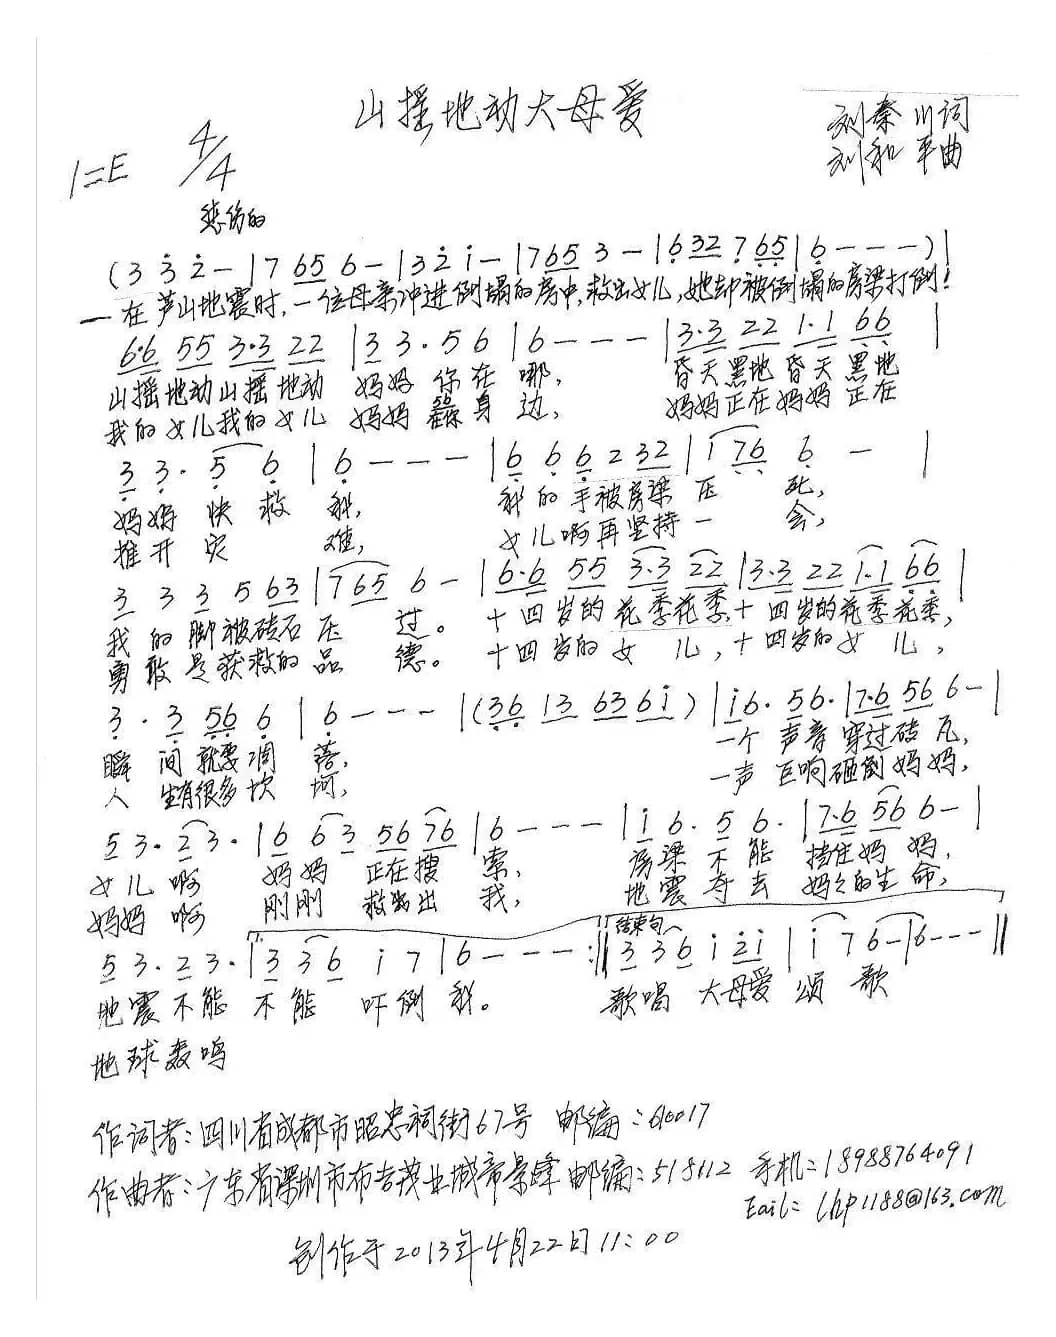 山摇地动大母爱
刘秦川词
刘和平曲
1=E 4/4
悲伤的
(3 3̇ 2̇ - | 7 65 6 - | 3 2̇ i - | 7 65 3 - | 6 32 7 65 | 6 - - - ) |
—在芦山地震时,一位母亲冲进倒塌的房中,救出女儿,她却被倒塌的房梁打倒!
6·6 55 3·3 22 | 3 3· 5 6 | 6 - - - | 3·3 22 1·1 66 |
山摇地动山摇地动 妈妈 你在 哪, 昏天黑地昏天黑地
我的女儿我的女儿 妈妈 在身 边, 妈妈正在妈妈正在
3 3· 5 6 | 6 - - - | 6 6 6 2 32 | i 76 6 - |
妈妈 快 救 我, 我的手被房梁 压 死,
推开 灾 难, 女儿啊再坚持 一 会,
3 3 3 5 63 | 765 6 - | 6·6 55 3·3 22 | 3·3 22 1·1 66 |
我的脚被砖石 压 过。 十四岁的花季花季,十四岁的花季花季,
勇敢是获救的 品 德。 十四岁的女 儿,十四岁的女 儿,
3· 3 56 6 | 6 - - - | (36 13 63 6i) | i6· 56· | 7·6 56 6 - |
瞬 间就要凋 落, 一个 声音 穿过砖 瓦,
人 生有很多坎 坷, 一声 巨响砸倒妈妈,
5 3· 2 3· | 6 6 3 56 76 | 6 - - - | i 6· 5 6· | 7·6 56 6 - |
女儿 啊 妈妈 正在搜 索, 房梁 不能 挡住妈 妈,
妈妈 啊 刚刚 救出 我, 地震 夺去 妈妈的生命,
结束句
5 3· 2 3· | 3 3 6 i 7 | 6 - - - :‖ 3 3 6 i 2̇i | i 7 6 - | 6 - - - ‖
地震不能 不能 吓倒 我。 歌唱 大母爱 颂 歌
地球轰鸣
作词者:四川省成都市昭忠祠街67号 邮编:610017
作曲者:广东省深圳市布吉茂业城帝景峰 邮编:518112 手机:18988764091
Eail: lhp1188@163.com
创作于2013年4月22日11:00